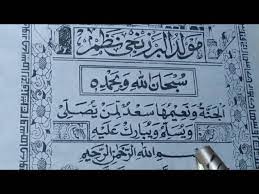 مولد البرزنجي نظم
سبحان الله وبحمده
الجنة ونعيمها سعد لمن يصلي
ويسلم ويبارك عليه
بسم الله الرحمن الرحيم